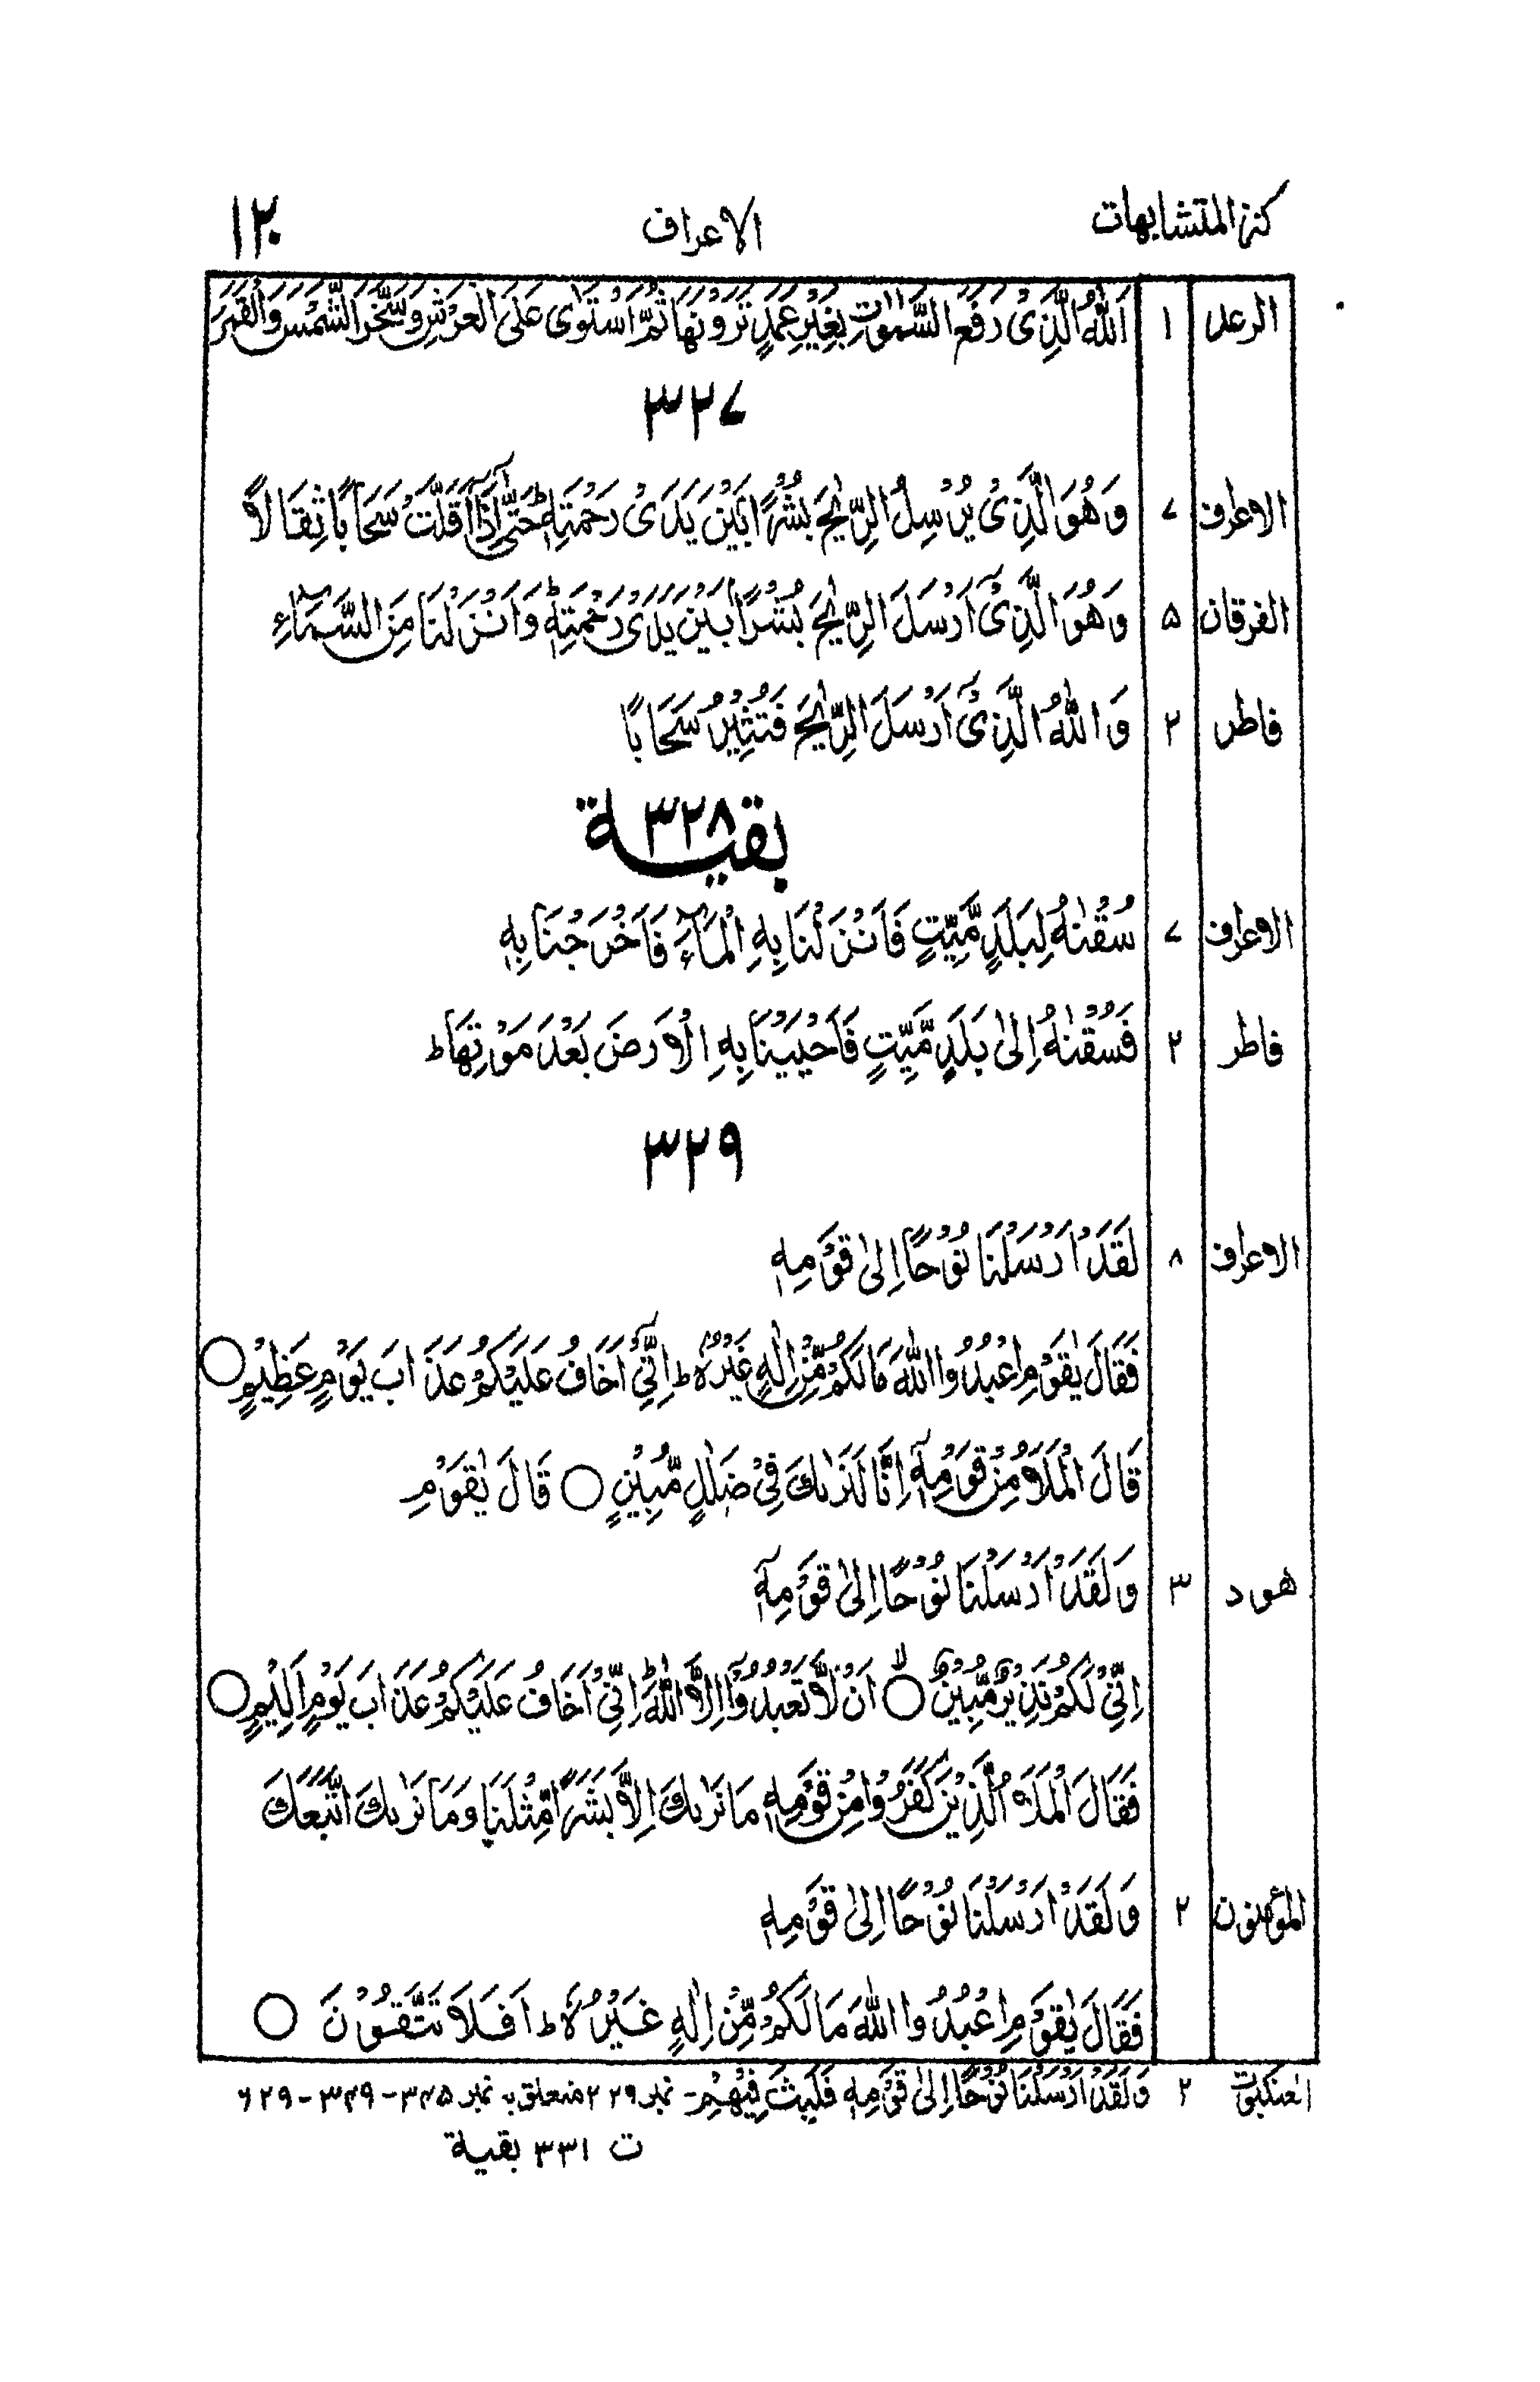 كنز المتشابهات الاعراف ۱۲۰
الرعد ۱ اَللّٰهُ الَّذِىْ رَفَعَ السَّمٰوٰتِ بِغَيْرِ عَمَدٍ تَرَوْنَهَا ثُمَّ اسْتَوٰى عَلَى الْعَرْشِ وَسَخَّرَ الشَّمْسَ وَالْقَمَرَ
۳۲۷
الاعراف ۷ وَهُوَ الَّذِىْ يُرْسِلُ الرِّيٰحَ بُشْرًۢا بَيْنَ يَدَىْ رَحْمَتِهٖ ؕ حَتّٰٓى اِذَآ اَقَلَّتْ سَحَابًا ثِقَالًا
الفرقان ۵ وَهُوَ الَّذِىْٓ اَرْسَلَ الرِّيٰحَ بُشْرًۢا بَيْنَ يَدَىْ رَحْمَتِهٖ ؕ وَاَنْزَلْنَا مِنَ السَّمَآءِ
فاطر ۲ وَاللّٰهُ الَّذِىْٓ اَرْسَلَ الرِّيٰحَ فَتُثِيْرُ سَحَابًا
بقية ۳۲۸
الاعراف ۷ سُقْنٰهُ لِبَلَدٍ مَّيِّتٍ فَاَنْزَلْنَا بِهِ الْمَآءَ فَاَخْرَجْنَا بِهٖ
فاطر ۲ فَسُقْنٰهُ اِلٰى بَلَدٍ مَّيِّتٍ فَاَحْيَيْنَا بِهِ الْاَرْضَ بَعْدَ مَوْتِهَا ؕ
۳۲۹
الاعراف ۸ لَقَدْ اَرْسَلْنَا نُوْحًا اِلٰى قَوْمِهٖ
فَقَالَ يٰقَوْمِ اعْبُدُوا اللّٰهَ مَا لَكُمْ مِّنْ اِلٰهٍ غَيْرُهٗ ؕ اِنِّىْٓ اَخَافُ عَلَيْكُمْ عَذَابَ يَوْمٍ عَظِيْمٍ ○
قَالَ الْمَلَاُ مِنْ قَوْمِهٖٓ اِنَّا لَنَرٰىكَ فِىْ ضَلٰلٍ مُّبِيْنٍ ○ قَالَ يٰقَوْمِ
هود ۳ وَلَقَدْ اَرْسَلْنَا نُوْحًا اِلٰى قَوْمِهٖٓ
اِنِّىْ لَكُمْ نَذِيْرٌ مُّبِيْنٌ ○ۙ اَنْ لَّا تَعْبُدُوْٓا اِلَّا اللّٰهَ ؕ اِنِّىْٓ اَخَافُ عَلَيْكُمْ عَذَابَ يَوْمٍ اَلِيْمٍ ○
فَقَالَ الْمَلَاُ الَّذِيْنَ كَفَرُوْا مِنْ قَوْمِهٖ مَا نَرٰىكَ اِلَّا بَشَرًا مِّثْلَنَا وَمَا نَرٰىكَ اتَّبَعَكَ
المؤمنون ۲ وَلَقَدْ اَرْسَلْنَا نُوْحًا اِلٰى قَوْمِهٖ
فَقَالَ يٰقَوْمِ اعْبُدُوا اللّٰهَ مَا لَكُمْ مِّنْ اِلٰهٍ غَيْرُهٗ ؕ اَفَلَا تَتَّقُوْنَ ○
العنكبوت ۲ وَلَقَدْ اَرْسَلْنَا نُوْحًا اِلٰى قَوْمِهٖ فَلَبِثَ فِيْهِمْ۔ نمبر ۳۲۹ متعلق بہ نمبر ۳۴۵-۳۴۹-۶۲۹
ت ۳۳۱ بقية